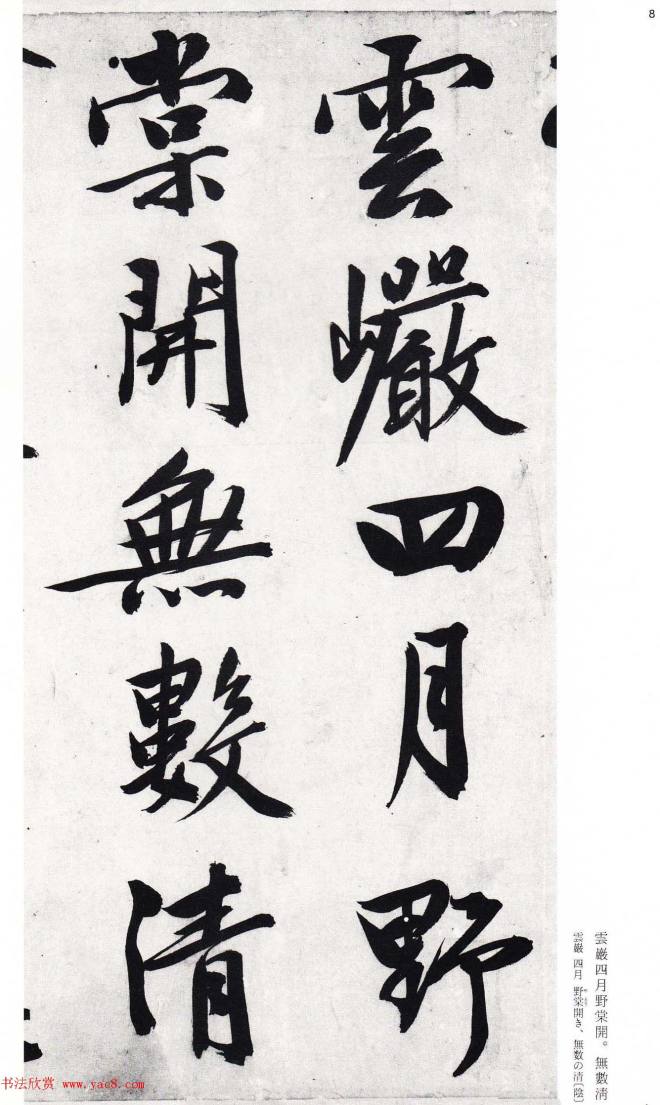 8
雲巖四月野
棠開無數清
雲巌四月野棠開。無數淸
雲巌四月 野棠開き、無数の清〔陰〕
书法欣赏 www.yac8.com